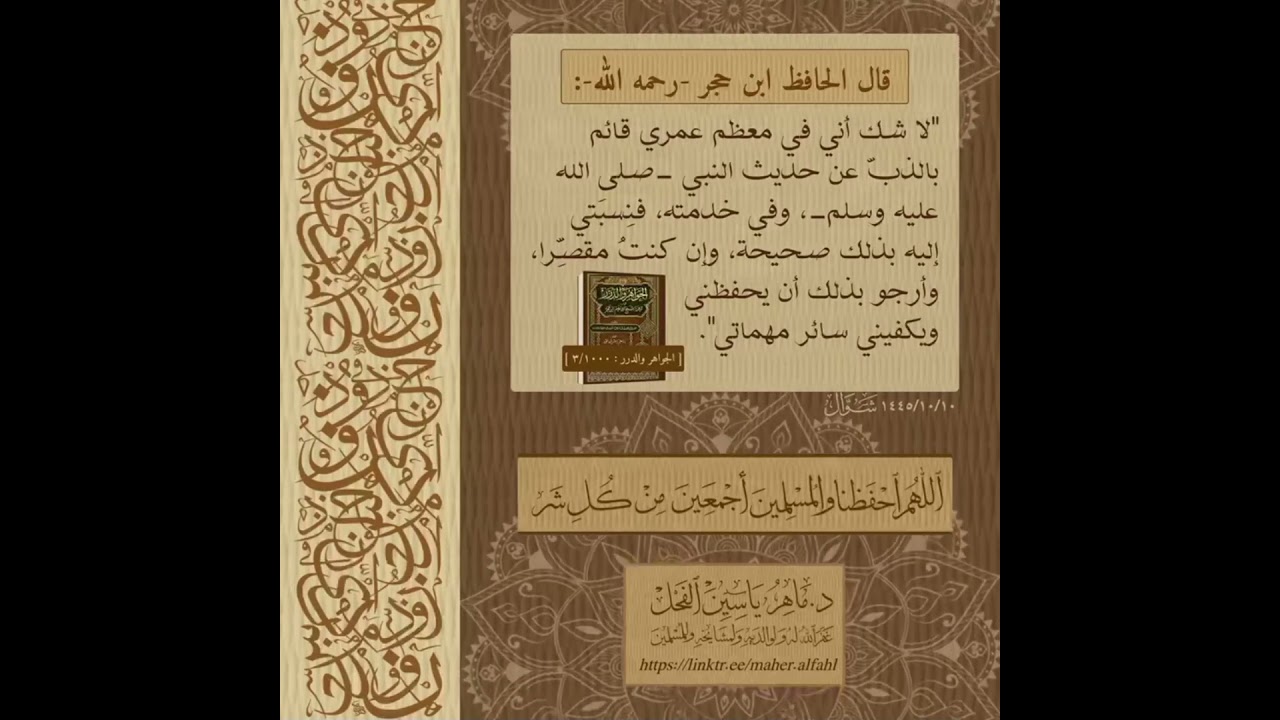 قال الحافظ ابن حجر -رحمه الله-:
"لا شك أني في معظم عمري قائم
بالذبّ عن حديث النبي ـ صلى الله
عليه وسلم ـ، وفي خدمته، فنِسبَتي
إليه بذلك صحيحة، وإن كنتُ مقصّرا،
وأرجو بذلك أن يحفظني
ويكفيني سائر مهماتي".
الجواهر والدرر
[ الجواهر والدرر : ٣/١٠٠٠ ]
١٤٤٥/١٠/١٠ شَوَّال
اَللّٰهُمَّ اَحْفَظْنا والمُسْلِمِينَ أَجْمَعِينَ مِنْ كُلِ شَر
د. مَاهِر يَاسِيْن اَلْفَحْل
غَفَرَ اَللهُ لَهُ وَلِوَالِدَيْهِ وَلِمَشَايِخِهِ وَالمُسْلِمِيْنَ
https://linktr.ee/maher.alfahl